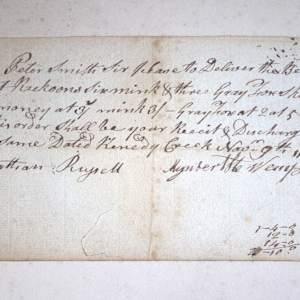 Peter Smith Sir Please to Deliver the Be
t Rackoons Six mink & three Gray Fox Sk
money at 9/ mink 3/- Gray Fox at 2 at 5
is order Shall be your Receit & Discharge
Same Dated Kenedy Creek Novr 9th
athan Russell Myndert Wemp
1-4-0
14-0